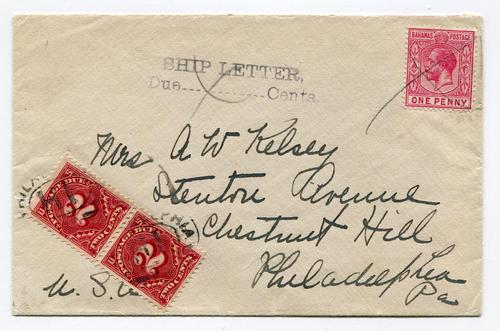 SHIP LETTER,
Due.............Cents.
BAHAMAS POSTAGE
ONE PENNY
Mrs A W Kelsey
Stenton Avenue
Chestnut Hill
Philadelphia
Pa
U.S.a
POSTAGE DUE
2
TWO CENTS
POSTAGE DUE
2